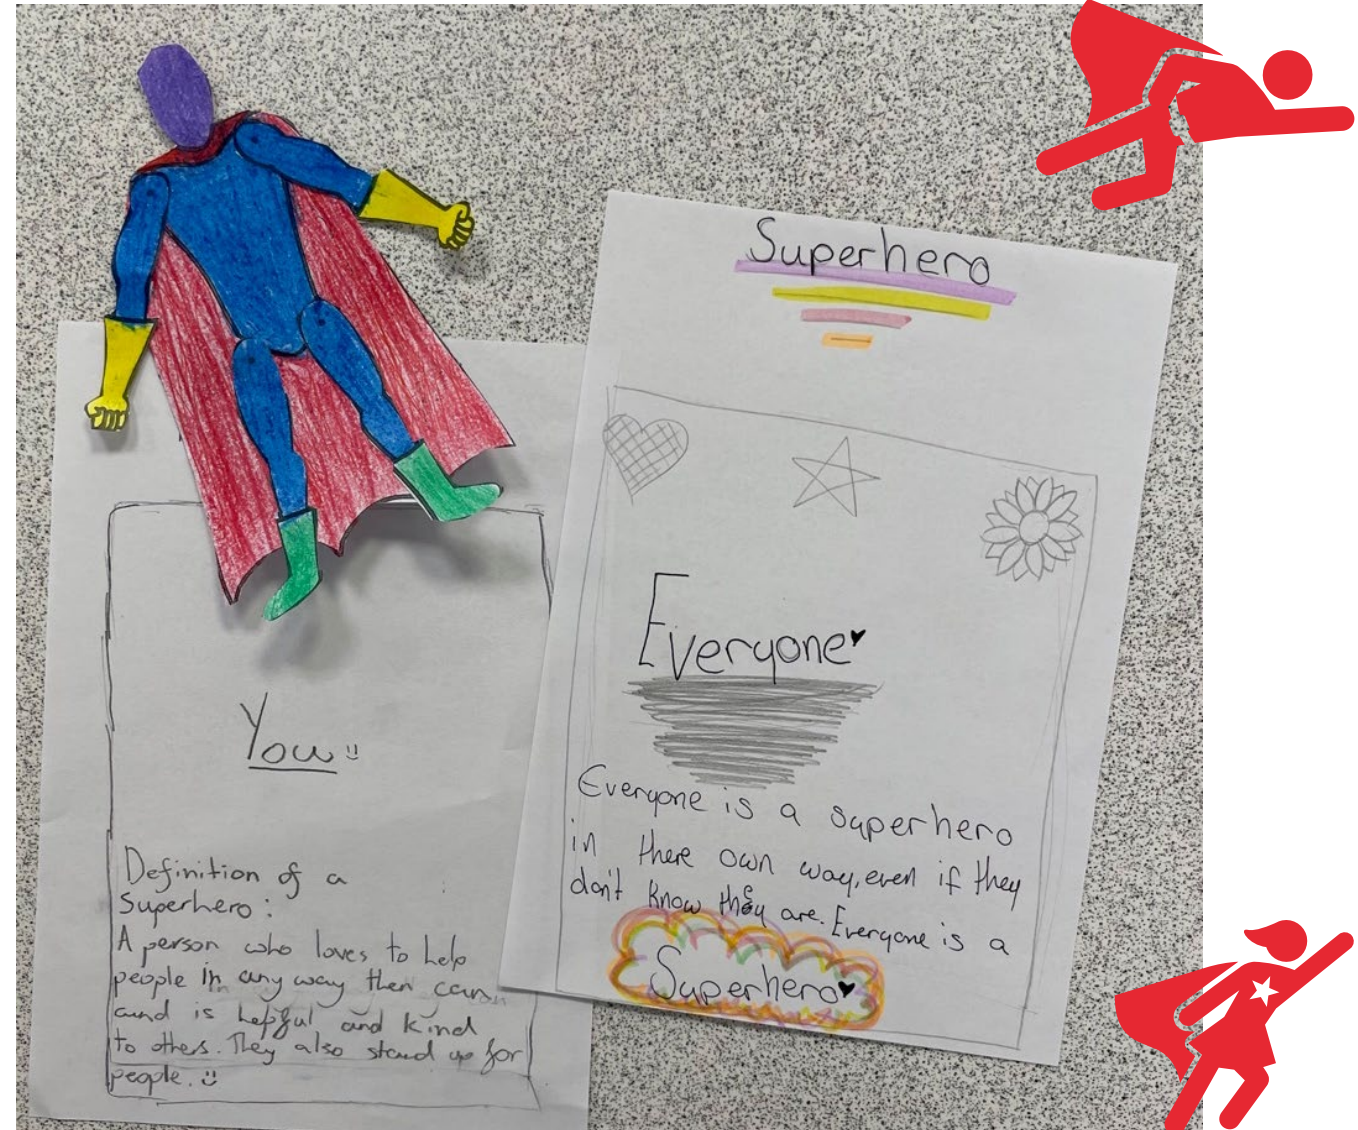 You
Definition of a
Superhero:
A person who loves to help
people in any way then can
and is helpful and kind
to others. They also stand up for
people.
Superhero
Everyone
Everyone is a superhero
in there own way, even if they
don't know they are. Everyone is a
Superhero